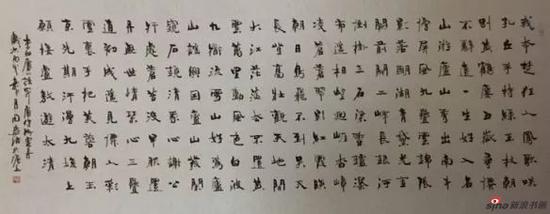 我本楚狂人鳳歌咲
孔丘手持綠玉杖朝
别黄鶴樓五岳尋仙
不辭遠一生好入名
山遊廬山秀出南斗
傍屏風九疊雲錦張
影落明湖青黛光金
闕前開二峰長銀河
倒挂三石梁香爐瀑
布遙相望迴崖沓嶂
凌蒼蒼翠影紅霞映
朝日鳥飛不到吳天
長登高壯觀天地間
大江茫茫去不還黄
雲萬里動風色白波
九道流雪山好為廬
山謠興因廬山發閑
窺石鏡清我心謝公
行處蒼苔没早服還
丹無世情琴心三疊
道初成遙見仙人彩
雲裏手把芙蓉朝玉
京先期汗漫九垓上
願接盧敖遊太清
李白廬山謠寄盧侍御虚舟
sina 新浪书画